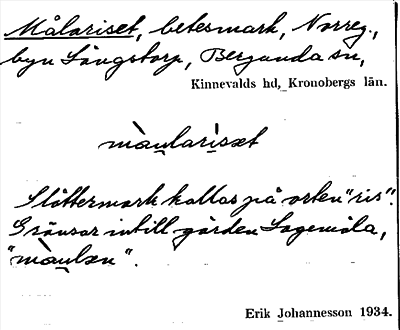 Målariset, betesmark, Norreg.,
byn Långstorp, Bergunda sn,
Kinnevalds hd, Kronobergs län.
màu̯lari̇̀sæt
Slåttermark kallas på orten "ris".
Gränsar intill gården Sagemåla,
"màu̯læn".
Erik Johannesson 1934.